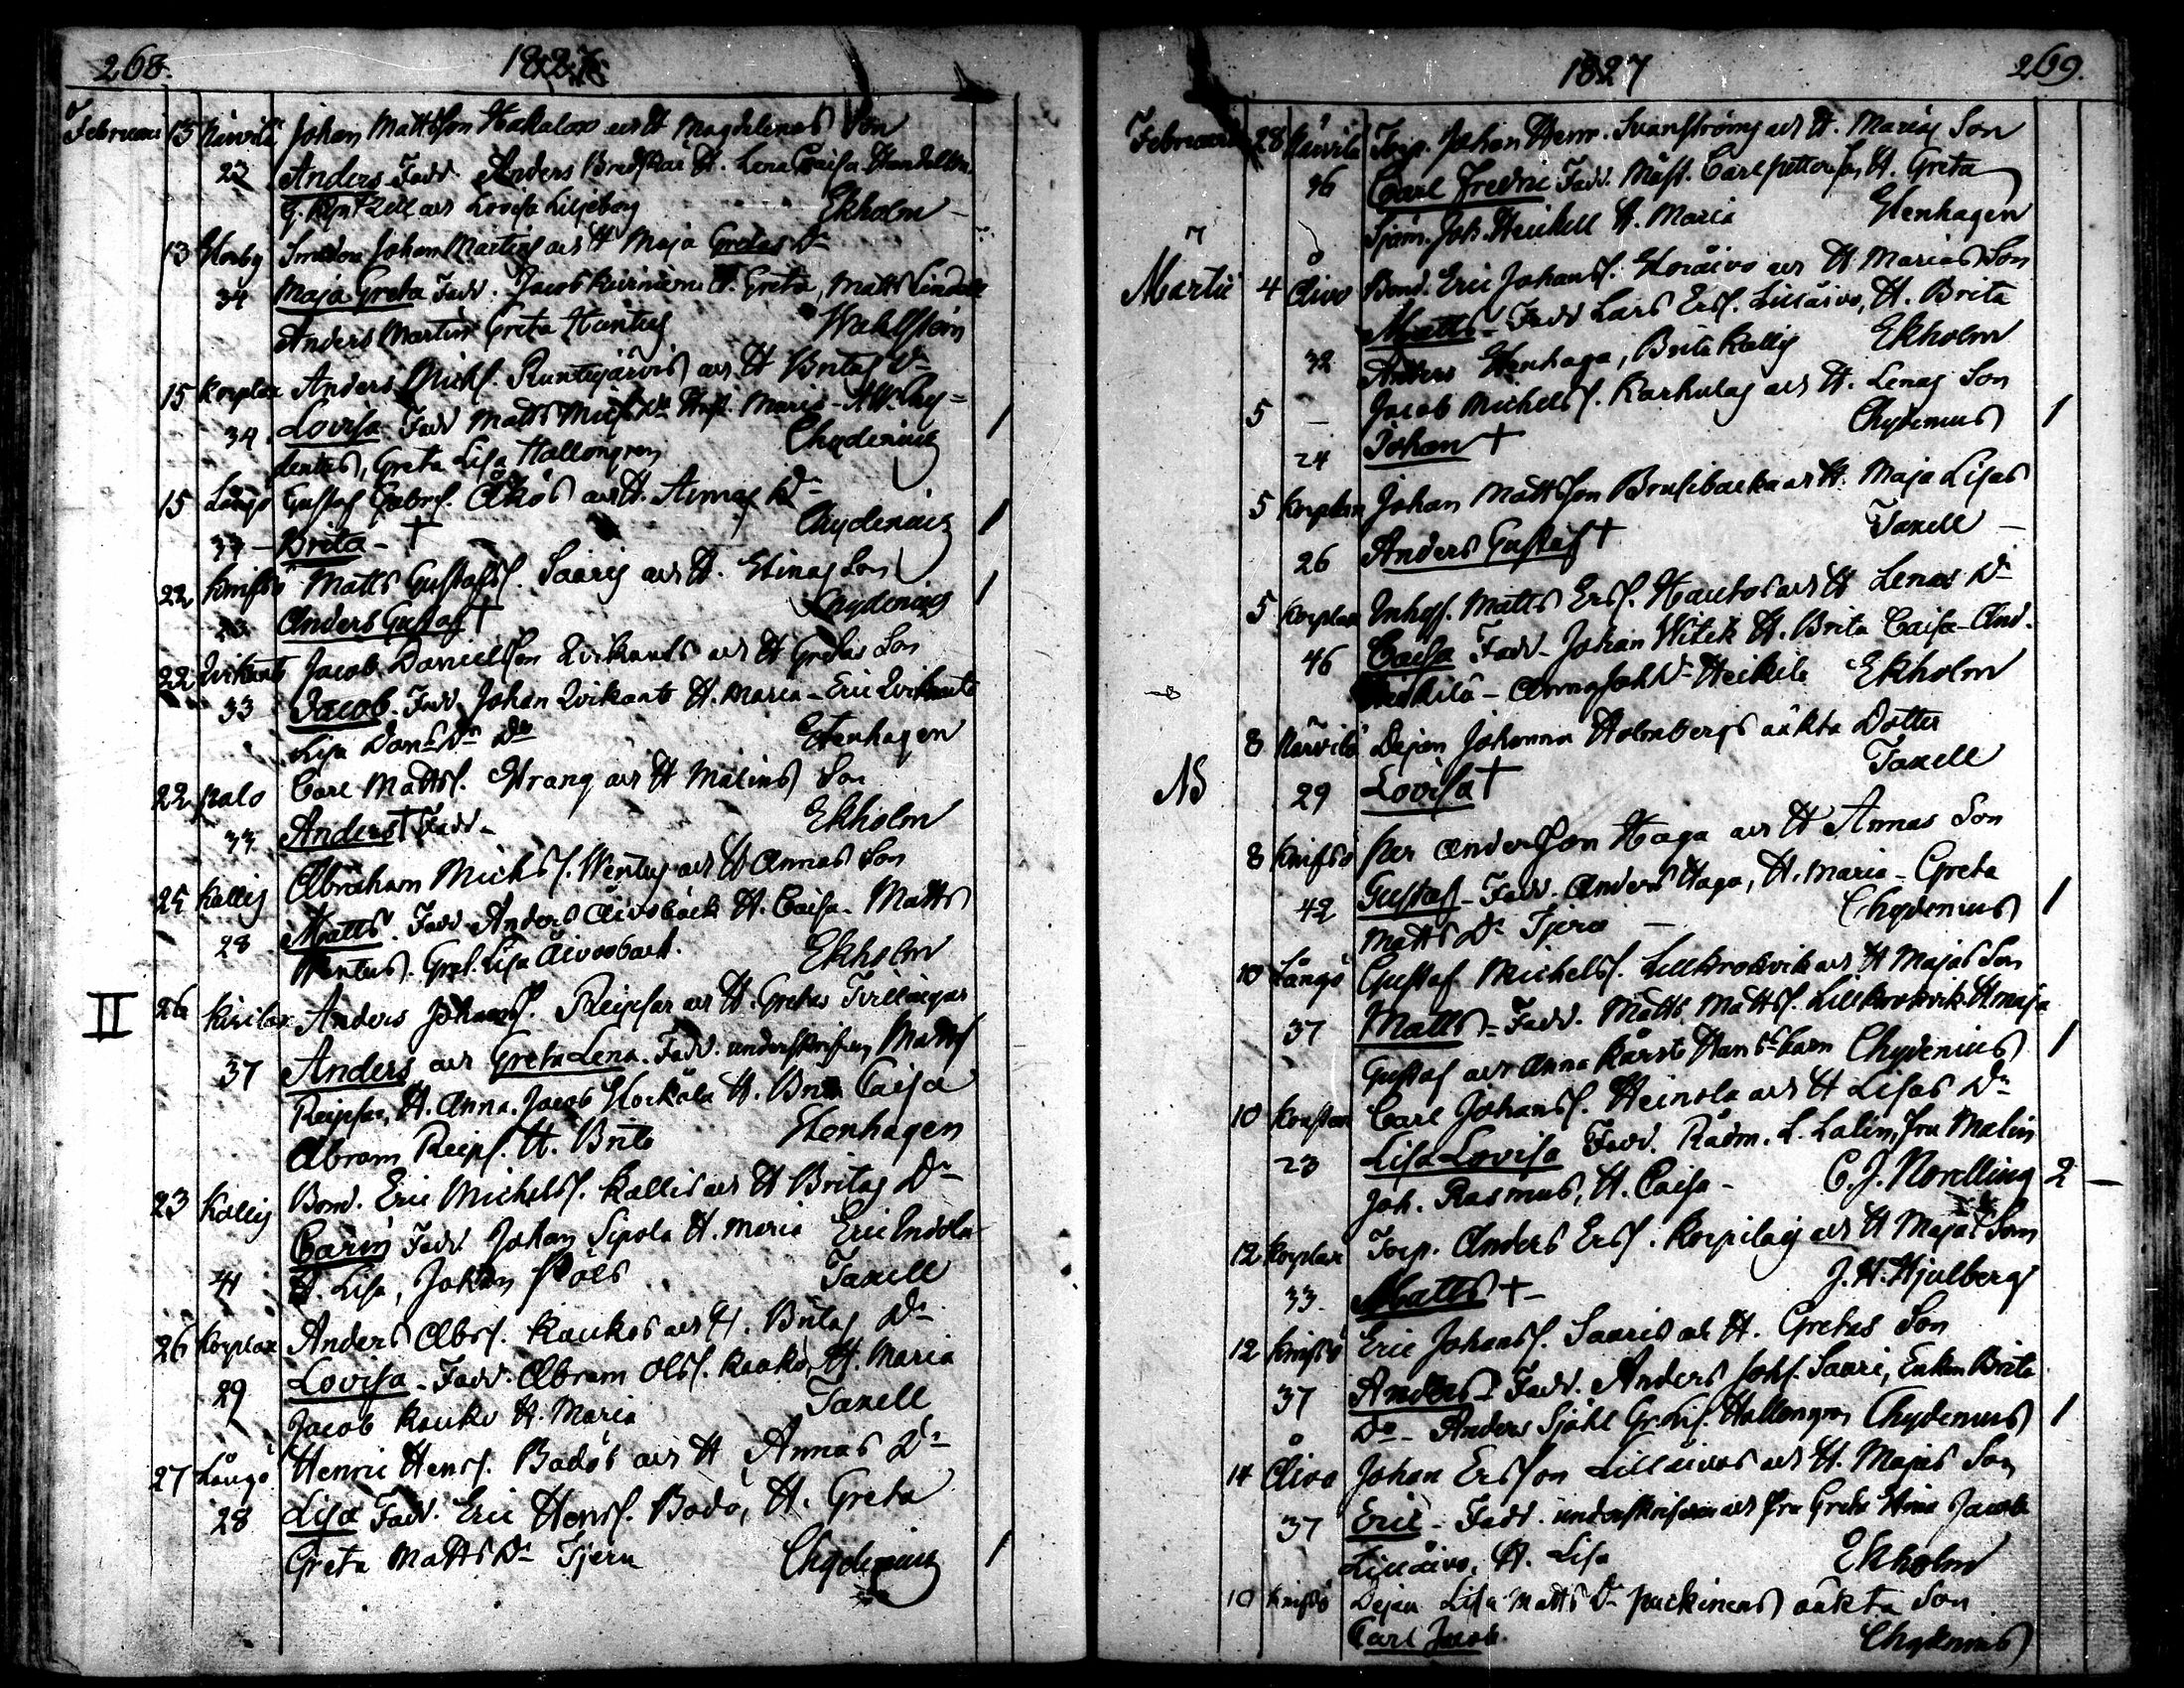 268. 1827
Februarii 13 Närvilä Johan Mattsson Hakalax och H Magdelenas Son
22 Anders Fadd. Anders Bredskär H. Lena Caisa
och Lovisa Liljeborg Ekholm
13 Storby Smeden Johan Martins och H Maja Gretas Dr
34 Maja Greta Fadd. Jacob H. Greta, Matts Lindell
Anders Martin Greta Wahlstein
15 Korplax Anders Michs. Runtujärvis och H Britas Dr
34 Lovisa Fadd Matts Maria
Greta Lisa Hallongren Chydenius 1
15 Långö Gustaf Gabrs. Åkös och H. Annas Dr
33 Brita † Chydenius 1
22 Knifsö Matts Gustafss. Saaris och H. Stinas Son
Anders Gustaf † Chydenius 1
22 Qvikants Jacob Danielsson Qvikants och H Gretas Son
33 Jacob. Fadd. Johan Qvikants H. Maria - Eric Qvikants
Lisa Dans Dr Do Stenhagen
22 Palo Carl Mattss. Strang och H Malins Son
33 Anders † Fadd. Ekholm
25 Kallis Abraham Michs. Wentus och H Annas Son
28 Matts. Fadd Anders Åivobäck H. Caisa. Matts
Wentus. Gret. Lisa Ekholm
II 26 Anders Johanss. Reipsar och H. Gretas Tvillingar
37 Anders och Greta Lena. Fadd. Matts
Reipsar, H. Anna. Jacob H. Brita Caisa
Abram Reips. H. Brita Stenhagen
23 Kallis Bond. Eric Michelss. Kallis och H Britas Dr
Carin Fadd. Johan Sipola H. Maria Eric Indola
41 H. Lisa, Johan Taxell
26 Korplax Anders Abrs. Kaukos och H. Britas Dr
29 Lovisa - Fadd. Abram Olss. Kauko, H. Maria
Jacob Kauko H. Maria Taxell
27 Långö Henric Henrs. Bodös och H Annas Dr
28 Lisa Fadd. Eric Henrs. Bodö, H. Greta
Greta Matts Dr Tjeru Chydenius 1
1827 269.
Februarii 28 Närvilä Torp. Johan Henr. Svanströms och H. Marias Son
46 Carl Fredric Fadd. Mäst. Carl Petterson H. Greta
Sjöm. Joh. Heickell H. Maria Stenhagen
Martii 4 Åivo Bond. Eric Johanss. Storåivo och H Marias Son
Matts - Fadd Lars Erss. Lillåivo, H. Brita
32 Anders Stenhaga, Brita Kallis Ekholm
5 — Jacob Michelss. Karhulas och H. Lenas Son
24 Johan † Chydenius 1
5 Korplax Johan Mattsson Brusibacka och H. Maja Lisas
26 Anders Gustaf † Taxell —
5 Korplax Inhys. Matts Erss. Hautos och H Lenas Dr
46 Caisa Fadd. Johan Witick H. Brita Caisa And.
Heikilä - Anna Joh. Dr Heikilä Ekholm
8 Närvilä Dejan Johanna Holmbergs oäkta Dotter
NB 29 Lovisa † Taxell
8 Knifsö Per Andersson Haga och H Annas Son
42 Gustaf - Fadd. Anders Haga, H. Maria - Greta
Matts Dr Tjeru — Chydenius 1
10 Långö Gustaf Michelss. Lillkrokvik och H Majas Son
37 Matts - Fadd. Matts Mattss. Lillkrokvik H Maja
Gustaf och Anna Chydenius 1
10 Carl Johanss. Heinola och H Lisas Dr
23 Lisa Lovisa Fadd. Rådm. L. Lalin, Fru Malin
Joh. Rasmus, H. Caisa - C. J. Norelling 2 —
12 Korplax Torp. Anders Erss. Korpilax och H Majas Son
33. Matts † - J. H. Hjulberg
12 Knifsö Eric Johanss. Saaris och H. Gretas Son
37 Anders - Fadd. Anders Johs. Saari, Enkan Brita
Do - Anders Sjöhl Gr. Lis. Hallongren Chydenius 1
14 Åivo Johan Ersson Lillåivos och H. Majas Son
37 Eric - Fadd. och Fru Greta Jacob
Lillåivo, H. Lisa Ekholm
10 Knifsö Dejan Lisa Matts Dr Puckinens oäkta Son
Carl Jacob Chydenius